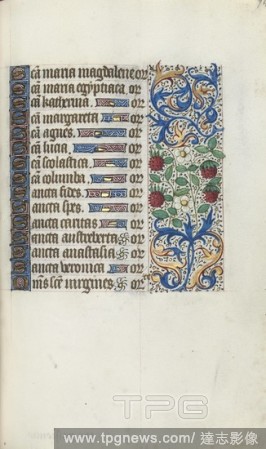 cā maria magdalene or
cā maria egyptiaca or
cā katherina or
cā margareta or
cā agnes or
cā lucia or
cā scolastica or
cā columba or
ancta fides or
ancta spes or
ancta caritas or
ancta austreberta or
ancta anastasia or
ancta veronica or
mēs scē virgines or
TPG
www.tpgnews.com / 達志影像